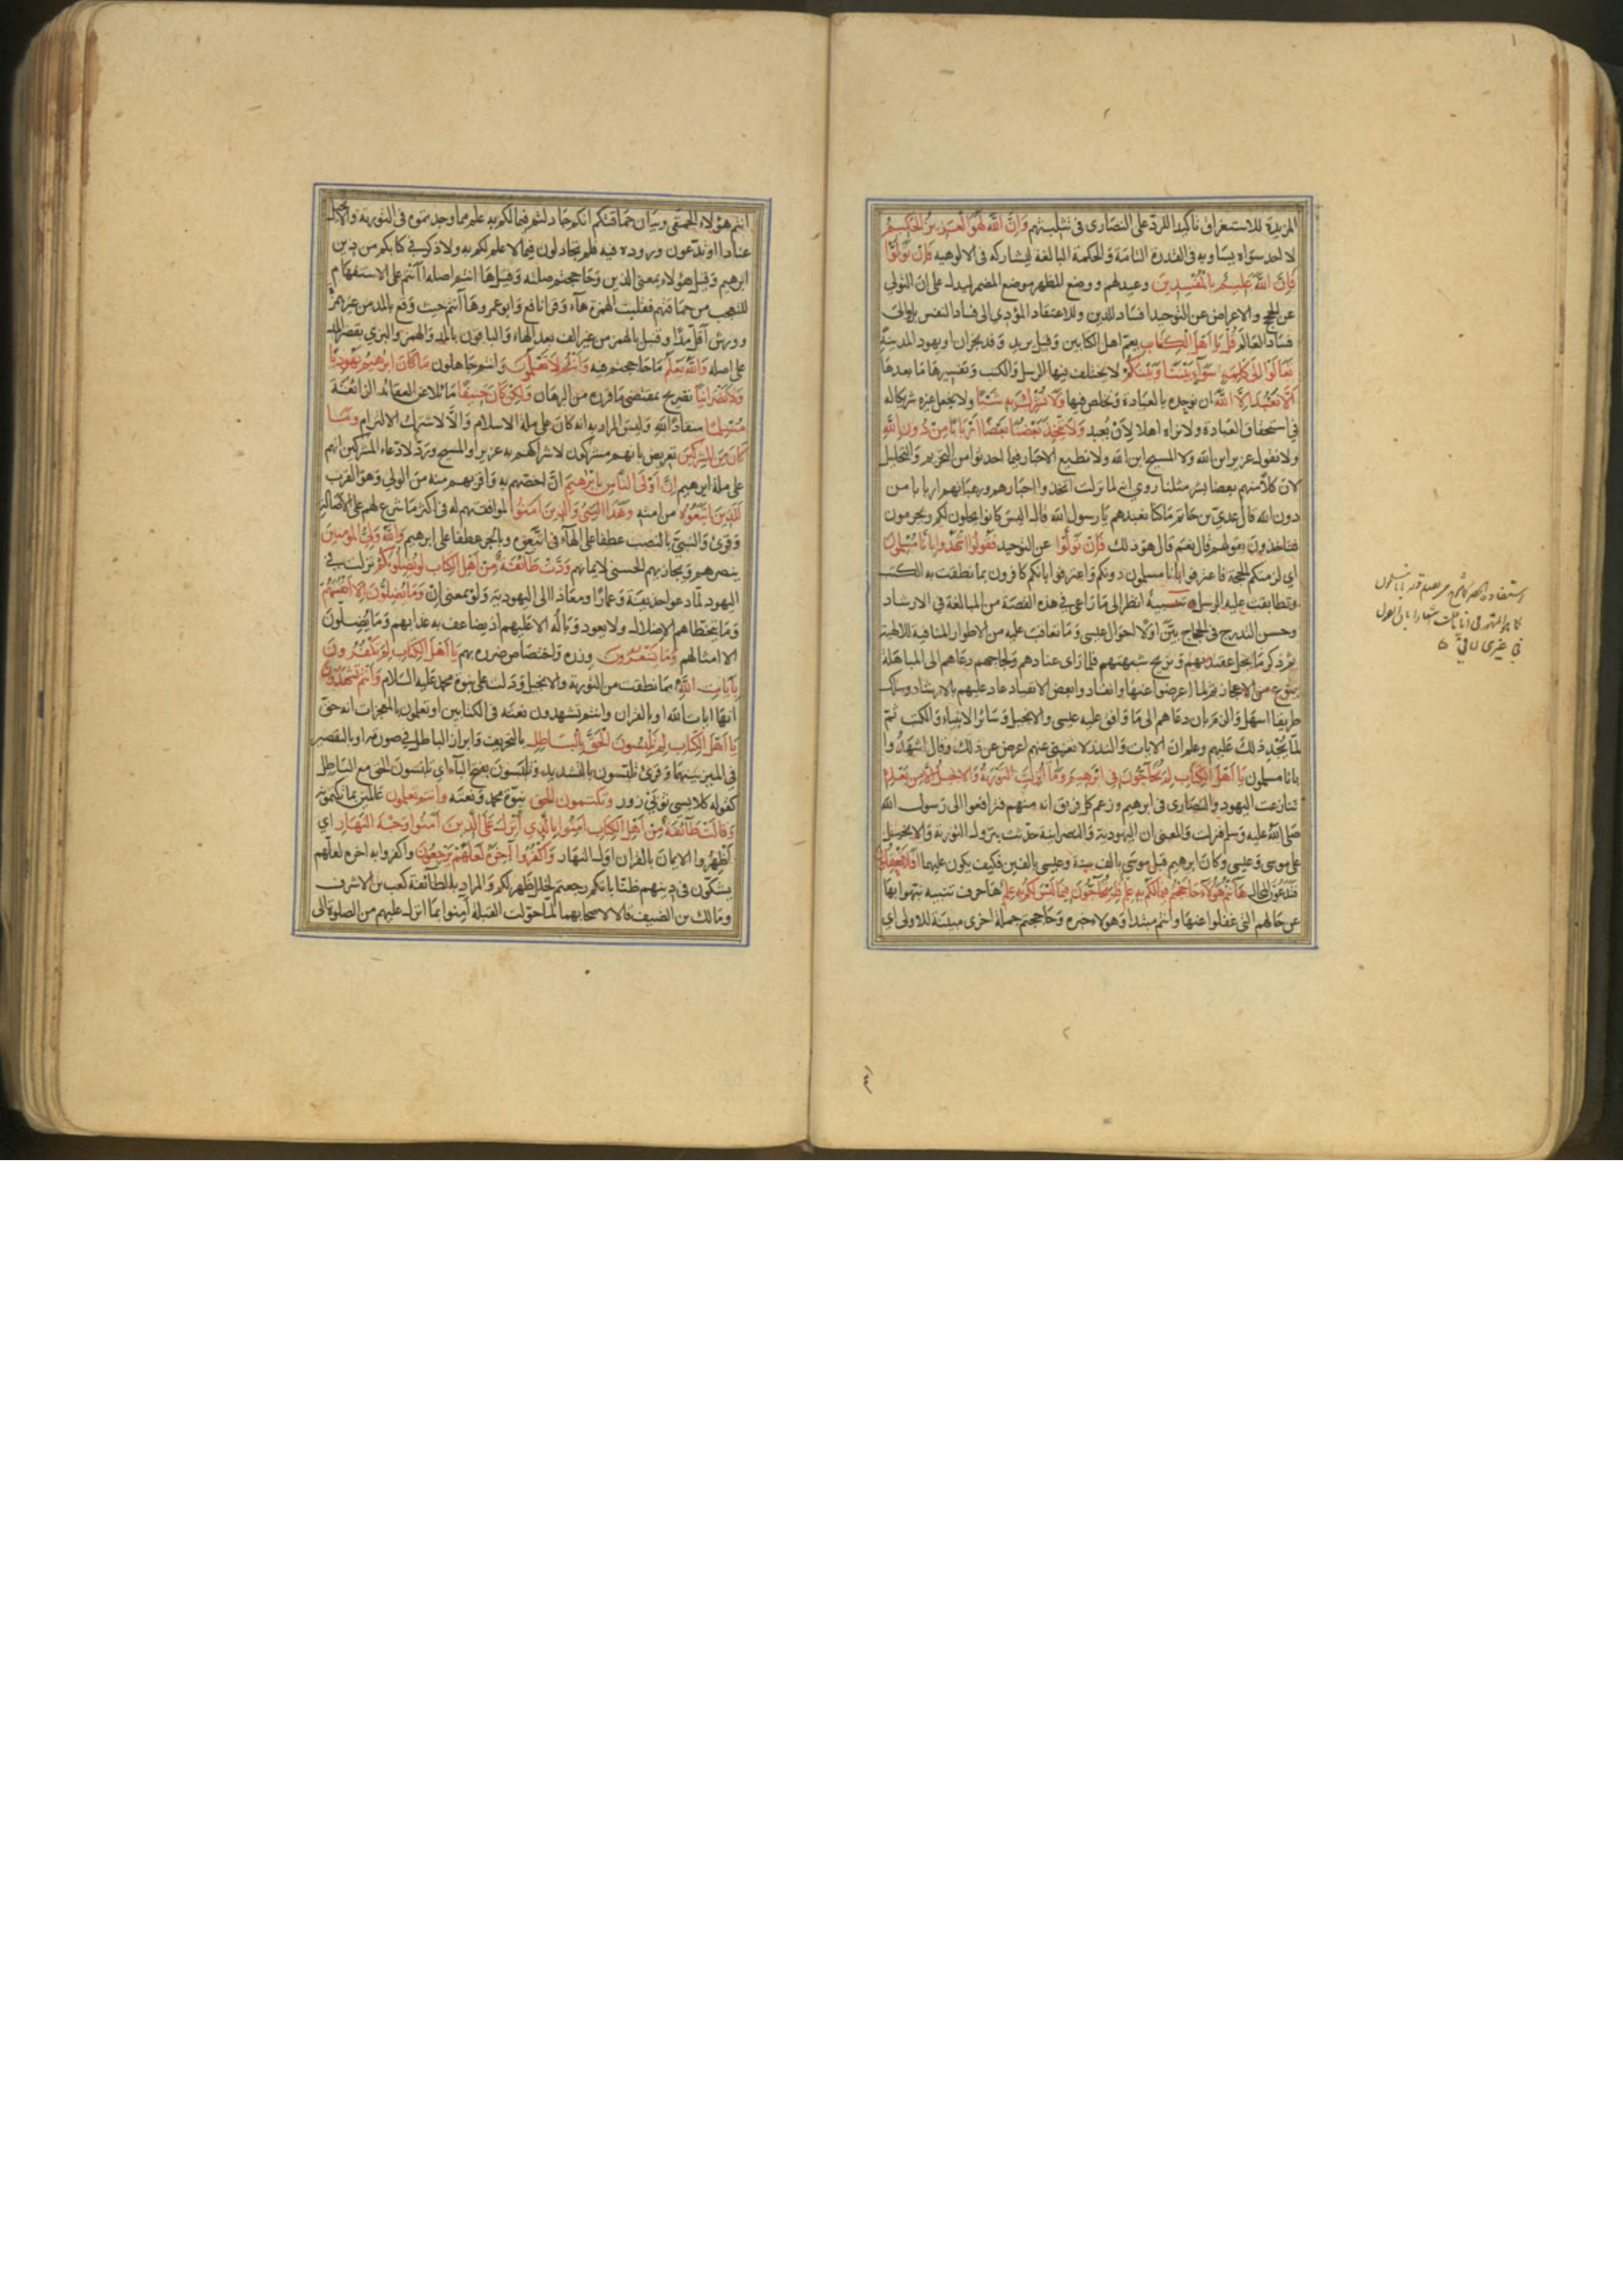 المزيدة للاستغراق تأكيدا للرد على النصارى في تثليثهم وَاِنَّ اللهَ لَهُوَ الْعَزِيزُ الْحَكِيمُ
لا احد سواه يساويه في القدرة التامة والحكمة البالغة ليشاركه في الالوهية فَاِنْ تَوَلَّوْا
فَاِنَّ اللهَ عَلِيمٌ بِالْمُفْسِدِينَ وعيد لهم ووضع المظهر موضع المضمر ليدل على ان التولي
عن الحجج والاعراض عن التوحيد افساد للدين والاعتقاد المؤدي الى فساد النفس بل والى
فساد العالم قُلْ يَا اَهْلَ الْكِتَابِ يعم اهل الكتابين وقيل يريد وفد نجران او يهود المدينة
تَعَالَوْا اِلَى كَلِمَةٍ سَوَآءٍ بَيْنَنَا وَبَيْنَكُمْ لا يختلف فيها الرسل والكتب وتفسيرها ما بعدها
اَلَّا نَعْبُدَ اِلَّا اللهَ ان نوحده بالعبادة ونخلص فيها وَلَا نُشْرِكَ بِهِ شَيْئًا ولا نجعل غيره شريكا له
في استحقاق العبادة ولا نراه اهلا لان يعبد وَلَا يَتَّخِذَ بَعْضُنَا بَعْضًا اَرْبَابًا مِنْ دُونِ اللهِ
ولا نقول عزير ابن الله ولا المسيح ابن الله ولا نطيع الاحبار فيما احدثوا من التحريم والتحليل
لان كلا منهم بعضنا بشر مثلنا روي انه لما نزلت اتخذوا احبارهم ورهبانهم اربابا من
دون الله قال عدي بن حاتم ما كنا نعبدهم يا رسول الله قال اليس كانوا يحلون لكم ويحرمون
فتاخذون بقولهم قال نعم قال هو ذلك فَاِنْ تَوَلَّوْا عن التوحيد فَقُولُوا اشْهَدُوا بِاَنَّا مُسْلِمُونَ
اي لزمتكم الحجة فاعترفوا بانا مسلمون دونكم واعترفوا بانكم كافرون بما نطقت به الكتب
وتطابقت عليه الرسل تنبيه انظر الى ما راعى في هذه القصة من المبالغة في الارشاد
وحسن التدرج في الحجاج بين اولا احوال عيسى وما تعاقب عليه من الاطوار المنافية للالهية
ثم ذكر ما يحل عقدتهم ويزيح شبهتهم فلما رأى عنادهم ولجاجهم دعاهم الى المباهلة
بنوع من الاعجاز ثم لما اعرضوا عنها وانقادوا بعض الانقياد عاد عليهم بالارشاد وسلك
طريقا اسهل والزم بان دعاهم الى ما وافق عليه عيسى والانجيل وسائر الانبياء والكتب ثم
لما لم يجد ذلك عليهم وعلم ان الايات والنذر لا تغني عنهم اعرض عن ذلك وقال اشهدوا
بانا مسلمون يَا اَهْلَ الْكِتَابِ لِمَ تُحَآجُّونَ فِي اِبْرٰهِيمَ وَمَا اُنْزِلَتِ التَّوْرٰيةُ وَالْاِنْجِيلُ اِلَّا مِنْ بَعْدِهِ
تنازعت اليهود والنصارى في ابرهيم وزعم كل فريق انه منهم فترافعوا الى رسول الله
صلى الله عليه وسلم فنزلت والمعنى ان اليهودية والنصرانية حدثت بنزول التورية والانجيل
على موسى وعيسى وكان ابرهيم قبل موسى بالف سنة وعيسى بالفين فكيف يكون عليهما اَفَلَا تَعْقِلُونَ
فتدعون المحال هَا اَنْتُمْ هٰؤُلَاءِ حَاجَجْتُمْ فِيمَا لَكُمْ بِهِ عِلْمٌ فَلِمَ تُحَآجُّونَ فِيمَا لَيْسَ لَكُمْ بِهِ عِلْمٌ ها حرف تنبيه نبهوا بها
عن حالهم التي غفلوا عنها وانتم مبتدأ وهؤلاء خبره وحاججتم جملة اخرى مبينة للاولى اي
انتم هؤلاء الحمقى وبيان حماقتكم انكم جادلتم فيما لكم به علم مما وجدتموه في التورية والانجيل
عنادا او تدعون وروده فيه فلم تجادلون فيما لا علم لكم به ولا ذكر في كتابكم من دين
ابرهيم وقيل هؤلاء بمعنى الذين وحاججتم صلته وقيل ها انتم اصله أأنتم على الاستفهام
للتعجب من حماقتهم فقلبت الهمزة هاء وقرا نافع وابو عمرو ها انتم حيث وقع بالمد من غير همز
وورش اقل مدا وقنبل بالهمز من غير الف بعد الهاء والباقون بالمد والهمز والبزي بقصر المد
على اصله وَاللهُ يَعْلَمُ ما حاججتم فيه وَاَنْتُمْ لَا تَعْلَمُونَ وانتم جاهلون مَا كَانَ اِبْرٰهِيمُ يَهُودِيًّا
وَلَا نَصْرَانِيًّا تصريح بمقتضى ما قرره من البرهان وَلٰكِنْ كَانَ حَنِيفًا مائلا عن العقائد الزائغة
مُسْلِمًا منقادا لله وليس المراد به انه كان على ملة الاسلام والا لاشترك الالزام وَمَا
كَانَ مِنَ الْمُشْرِكِينَ تعريض بانهم مشركون لاشراكهم به عزيرا والمسيح ورد لادعاء المشركين انهم
على ملة ابرهيم اِنَّ اَوْلَى النَّاسِ بِاِبْرٰهِيمَ ان اخصهم به واقربهم منه من الولي وهو القرب
لَلَّذِينَ اتَّبَعُوهُ من امته وَهٰذَا النَّبِيُّ وَالَّذِينَ اٰمَنُوا لموافقتهم له في اكثر ما شرع لهم على الاصالة
وقرئ والنبي بالنصب عطفا على الهاء في اتبعوه وبالجر عطفا على ابرهيم وَاللهُ وَلِيُّ الْمُؤْمِنِينَ
ينصرهم ويجازيهم الحسنى لايمانهم وَدَّتْ طَآئِفَةٌ مِنْ اَهْلِ الْكِتَابِ لَوْ يُضِلُّونَكُمْ نزلت في
اليهود لما دعوا حذيفة وعمارا ومعاذا الى اليهودية ولو بمعنى ان وَمَا يُضِلُّونَ اِلَّا اَنْفُسَهُمْ
وما يتخطاهم الاضلال ولا يعود وباله الا عليهم اذ يضاعف به عذابهم وما يضلون
الا امثالهم وَمَا يَشْعُرُونَ وزره واختصاص ضرره بهم يَا اَهْلَ الْكِتَابِ لِمَ تَكْفُرُونَ
بِاٰيَاتِ اللهِ بما نطقت من التورية والانجيل ودلت على نبوة محمد عليه السلام وَاَنْتُمْ تَشْهَدُونَ
انها ايات الله او بالقران وانتم تشهدون نعته في الكتابين او تعلمون بالمعجزات انه حق
يَا اَهْلَ الْكِتَابِ لِمَ تَلْبِسُونَ الْحَقَّ بِالْبَاطِلِ بالتحريف وابراز الباطل في صورته او بالتقصير
في الميز بينهما وقرئ تلبسون بالتشديد وتلبسون بفتح الباء اي تلبسون الحق مع الباطل
كقوله كلابس ثوبي زور وَتَكْتُمُونَ الْحَقَّ نبوة محمد ونعته وَاَنْتُمْ تَعْلَمُونَ عالمين بما تكتمونه
وَقَالَتْ طَآئِفَةٌ مِنْ اَهْلِ الْكِتَابِ اٰمِنُوا بِالَّذِي اُنْزِلَ عَلَى الَّذِينَ اٰمَنُوا وَجْهَ النَّهَارِ اي
اظهروا الايمان بالقران اول النهار وَاكْفُرُوا اٰخِرَهُ لَعَلَّهُمْ يَرْجِعُونَ واكفروا به اخره لعلهم
يشكون في دينهم ظنا بانكم رجعتم لخلل ظهر لكم والمراد بالطائفة كعب بن الاشرف
ومالك بن الضيف قالا لاصحابهما لما حولت القبلة امنوا بما انزل عليهم من الصلوة الى